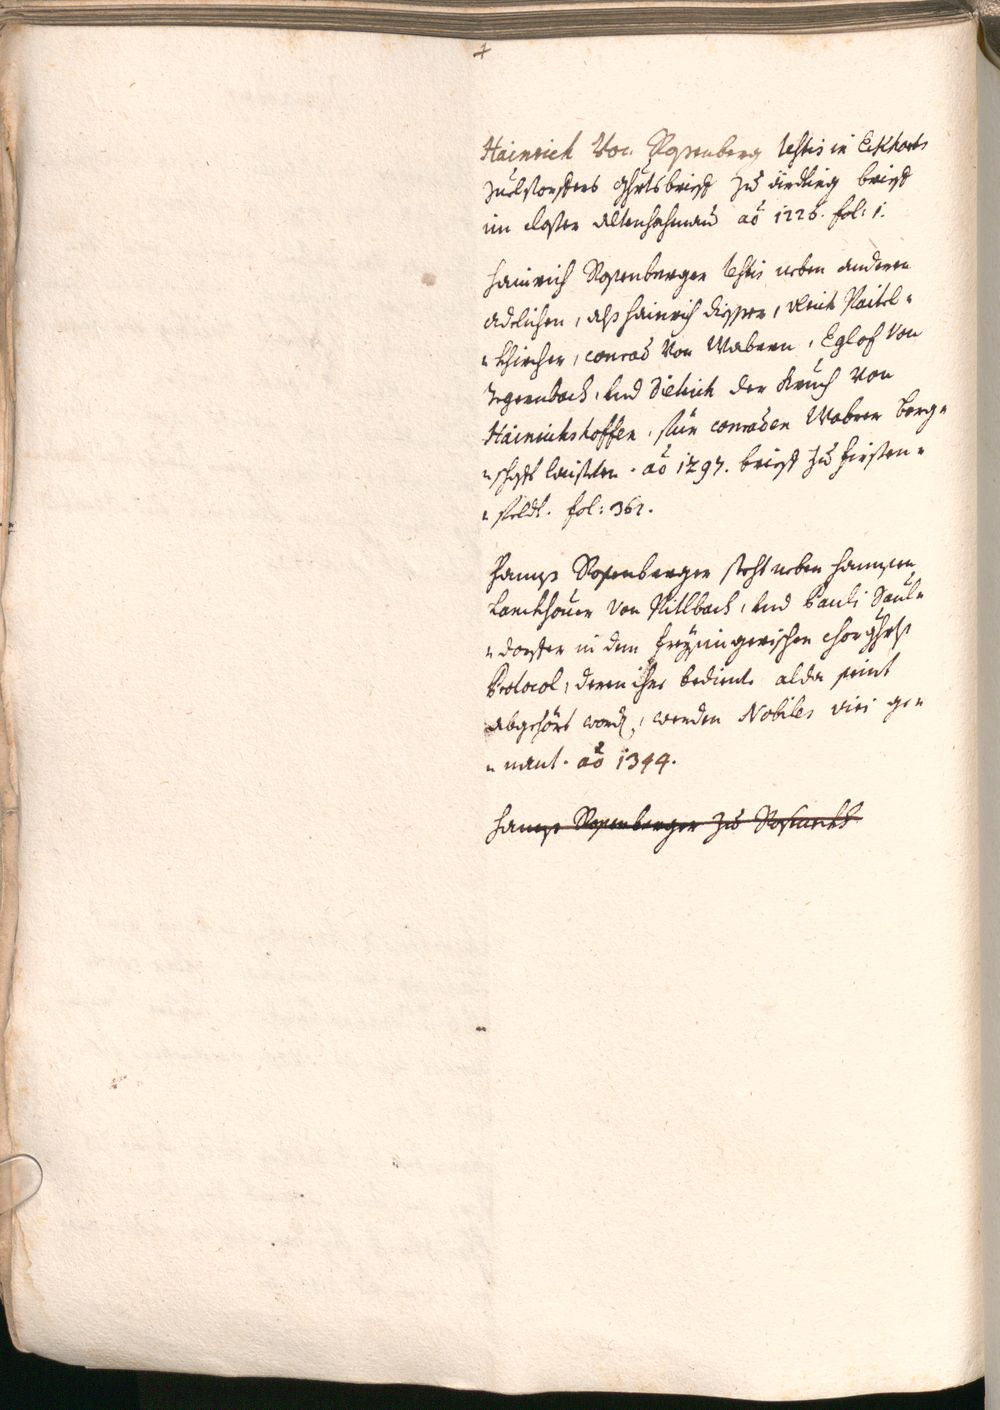 Hainrich Von Rosenberg testis in Eckhards
Zuelstorffers Ghrtsbrieff zu dirdling brieff
im closter Altenhohenau aō 1226. fol: 1.
Hainrich Rosenberger testis neben anderen
adelichen, alß Hainrich , Ulrich Vaitel=
=khircher, conrad Von Wabern, Eglof Von
Tegernbach, und Dietrich der Kruch Von
Hainrichshoffen, für conraden Wabrer Berg=
=schafft laistden. aō 1297. brieff Zu Firsten=
=feldt. fol: 362.
Hannß Rosenberger steht neben Hannsen
von Villbach, und Pauli Saul=
=dorffer in dem Freysingerischen chorghrts
Protocol, deren ihre bediente alda seint
abgehört word, werden Nobiles viri ge=
=nant. aō 1344.
Hannß Rosenberger Zu